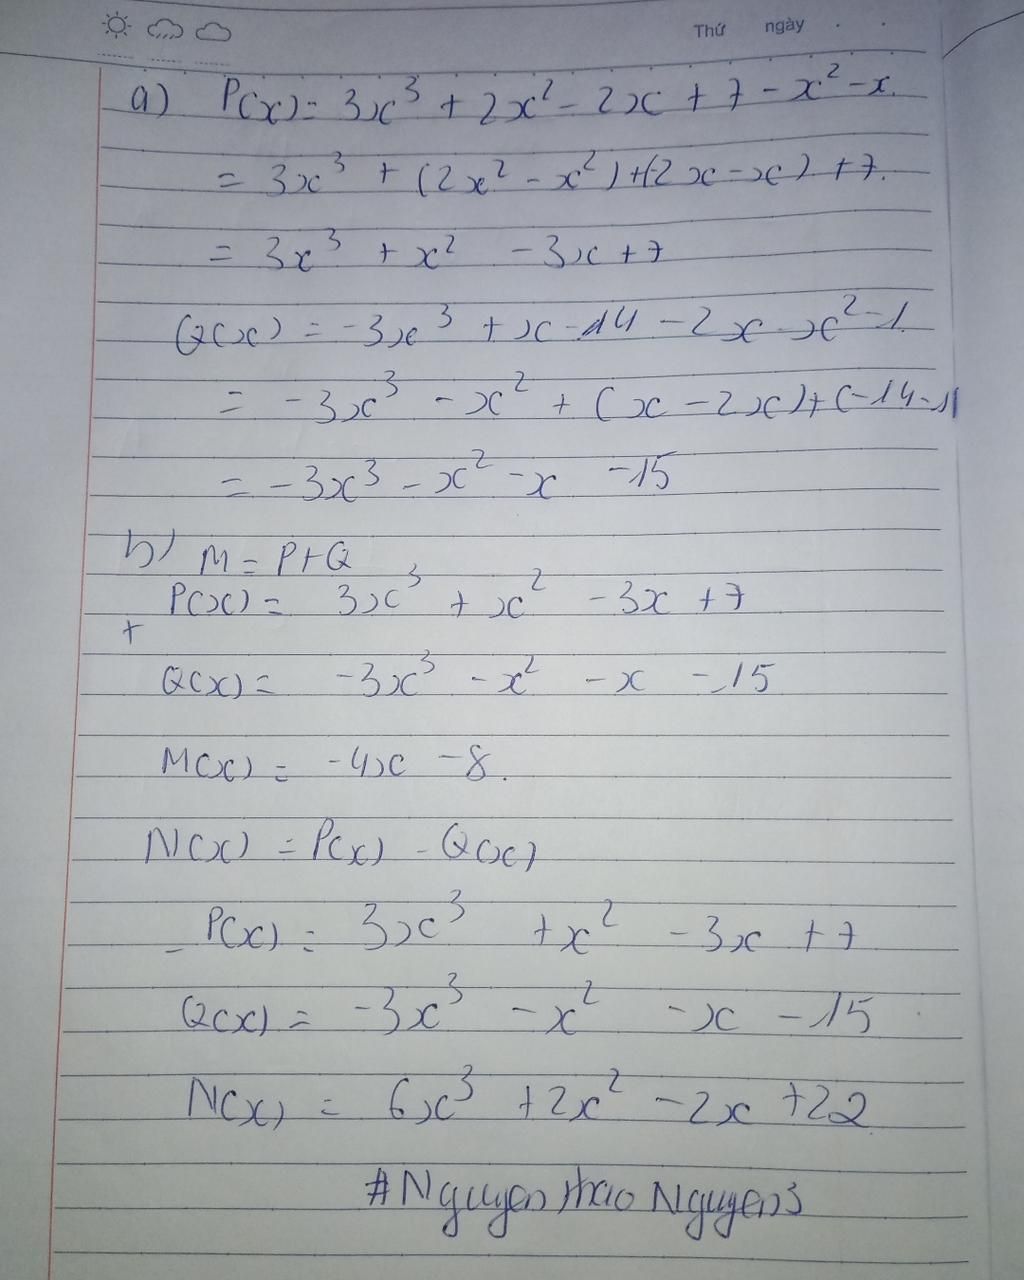 Thứ ngày
a) P(x) = 3x³ + 2x² - 2x + 7 - x² - x.
= 3x³ + (2x² - x²) + (-2x - x) + 7.
= 3x³ + x² - 3x + 7
Q(x) = -3x³ + x - 14 - 2x - x² - 1.
= -3x³ - x² + (x - 2x) + (-14 - 1)
= -3x³ - x² - x - 15
b) M = P + Q
P(x) = 3x³ + x² - 3x + 7
+
Q(x) = -3x³ - x² - x - 15
M(x) = -4x - 8.
N(x) = P(x) - Q(x)
- P(x) = 3x³ + x² - 3x + 7
Q(x) = -3x³ - x² - x - 15
N(x) = 6x³ + 2x² - 2x + 22
#Nguyen thao Nguyen3